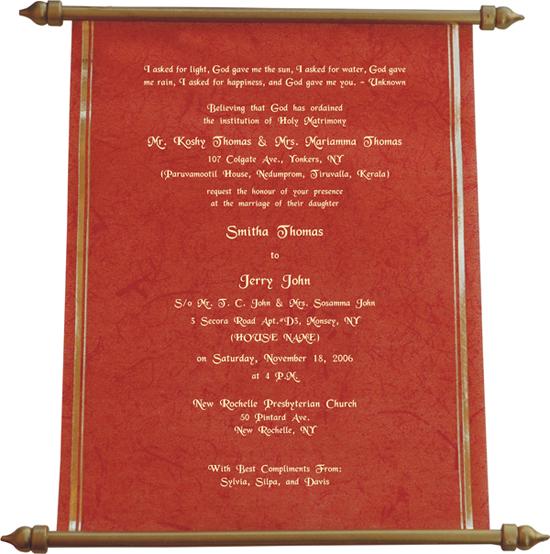 I asked for light, God gave me the sun, I asked for water, God gave
me rain, I asked for happiness, and God gave you. ~ Unknown
Believing that God has ordained
the institution of Holy Matrimony
Mr. Koshy Thomas & Mrs. Mariamma Thomas
107 Colgate Ave., Yonkers, NY
(Paruvamootil House, Nedumprom, Tiruvalla, Kerala)
request the honour of your presence
at the marriage of their daughter
Smitha Thomas
to
Jerry John
S/o Mr. T. C. John & Mrs. Sosamma John
5 Secora Road Apt.#D3, Monsey, NY
(HOUSE NAME)
on Saturday, November 18, 2006
at 4 P.M.
New Rochelle Presbyterian Church
50 Pintard Ave.
New Rochelle, NY
With Best Compliments From:
Sylvia, Silpa, and Davis